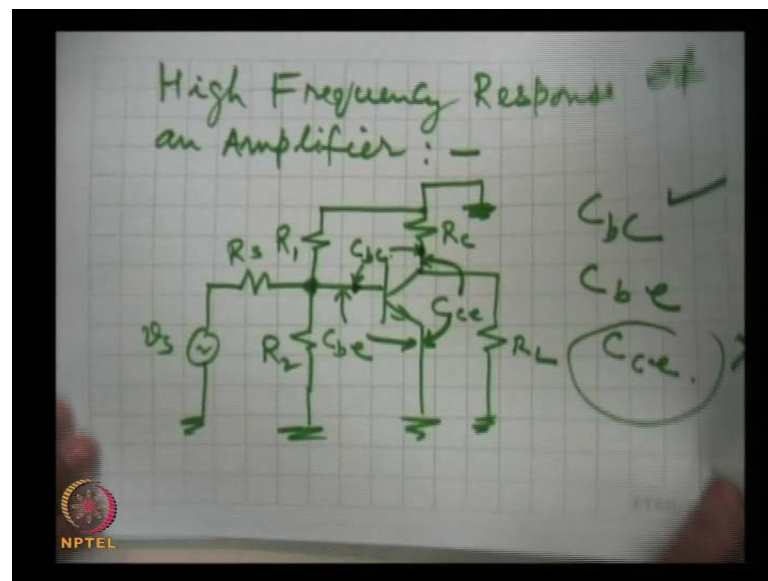 High Frequency Response of
an Amplifier : -
Rs
R1
Cbc
Rc
Cbc ✓
Cbe
vs
R2
Cbe
Cce
RL
Cce. X
NPTEL